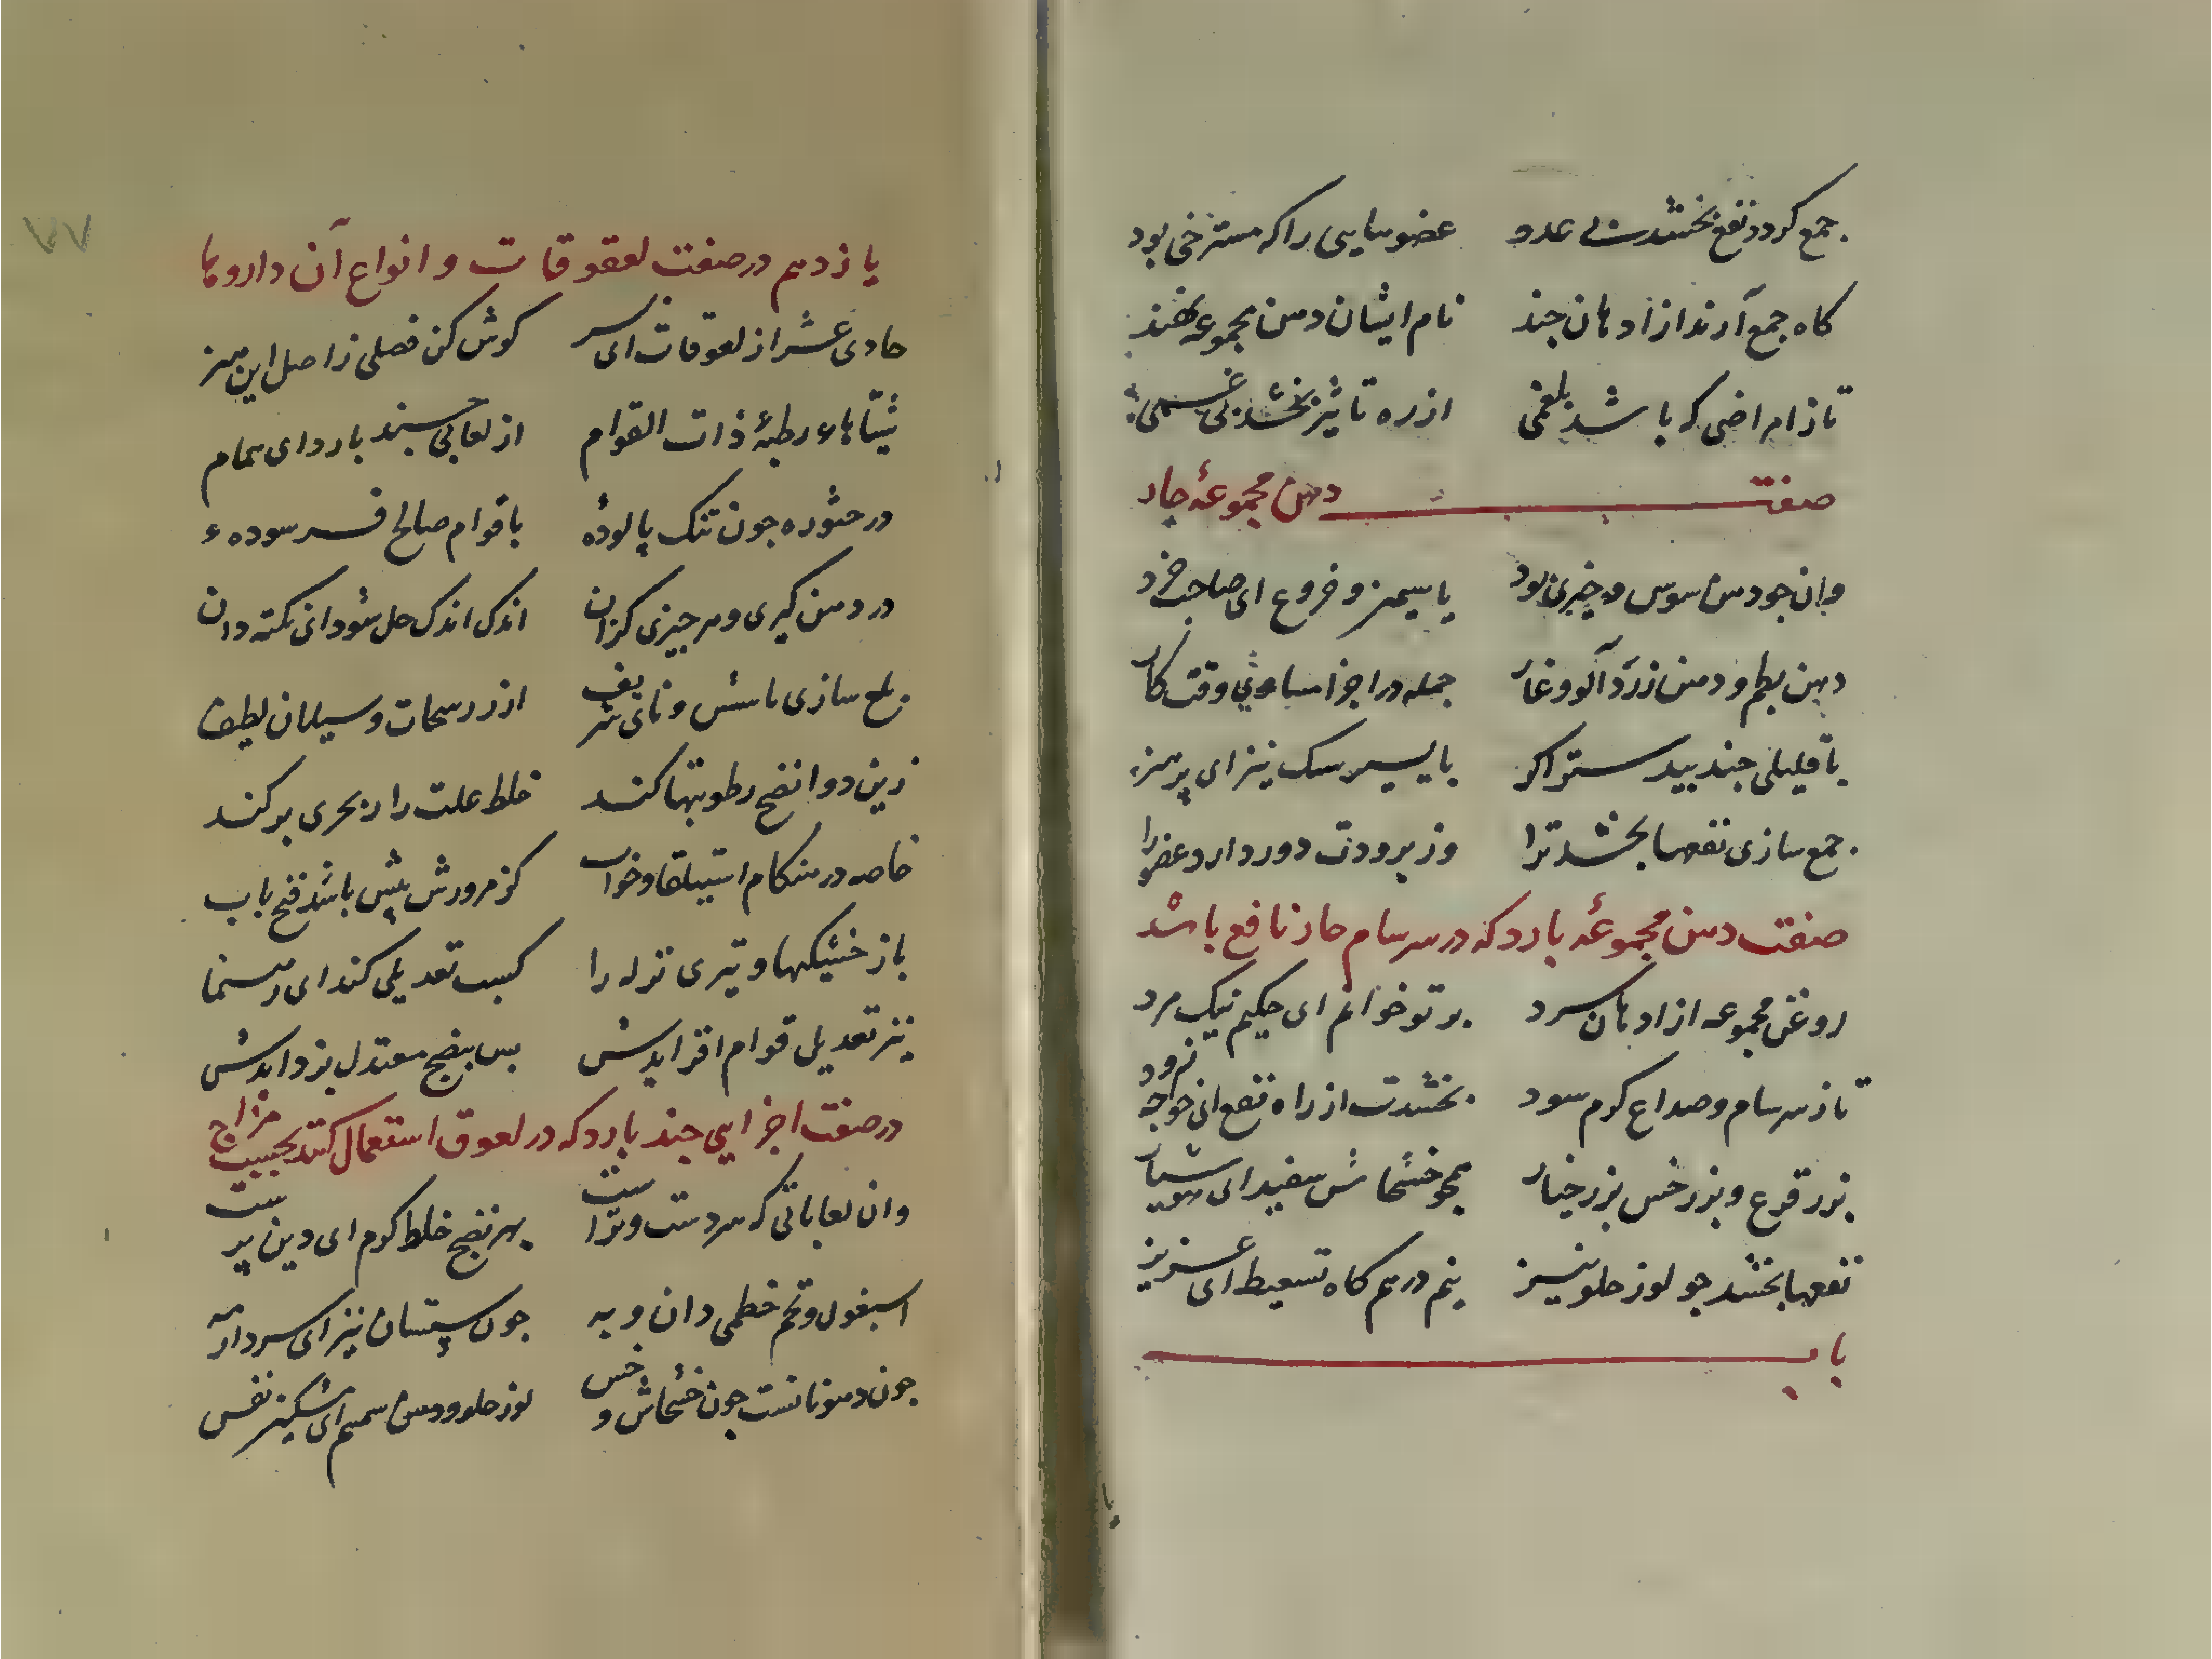 جمع کردد نفع بخشدت بی عدد عضوهایی را که مسترخی بود
کاه جمع آرند از ادهان چند نام ایشان دهن مجموعه نهند
تا ز امراضی که باشد بلغمی از ره تاثیر بخشد بی غمی
صفت دهن مجموعهٔ حار
وان چو دهن سوس و خیری بود یاسیمنز و فروع ای صاحب خرد
دهن بطم و دهن زردآلو و غار جمله در اجزا مساوی وقت کار
با قلیلی جند بیدستر اکر با یسیر مسک نیز ای پرهنر
جمع سازی نفعها بخشد ترا وز برودت دور دارد عضو را
صفت دهن مجموعهٔ بارد که در سرسام حار نافع باشد
روغن مجموعه از ادهان سرد بر تو خوانم ای حکیم نیک مرد
تا ز سرسام و صداع کرم سود بخشدت از راه نفع ای خواجه زود
بزر قرع و بزر خس بزر خیار همچو خشخاش سفید ای هوشیار
نفعها بخشد جو لوز حلو نیز نیم درهم کاه تسعیط ای عزیز
باب
۷۷
یازدهم در صفت لعقوقات و انواع آن داروها
حادی عشر از لعوقات ای سر کوش کن فصلی ز اصل این هنر
شیٔاهاء رطبهٔ ذات القوام از لعابی چند بارد ای همام
در حثوره جون تنک پالودهٔ با قوام صالح فرسودهء
در دهن کیری و هر جیزی کزان اندک اندک حل شود ای نکته دان
بلع سازی با شش و نای شریف از رشحات و سیلان لطیف
زین دوا نضج رطوبتها کند خلط علت را ز مجری بر کند
خاصه در هنکام استیلقا و خواب کز مرورش پیش باشد فتح باب
باز خشیکها و تیزی نزله را کسب تعدیلی کند ای رهنما
نیز تعدیلی قوام افزایدش بس بنضج معتدل بزدایدش
در صفت اجزایی جند بارد که در لعوق استعمال کنند بحسب مزاج
وان لعاباتی که سردست و تراست بهر نضج خلط کرم ای دین پرست
اسبغول و تخم خطمی دان و به جون سپستان نیز ای سردار مه
جون دهوناتست جون خشخاش و خس لوز حلو و دهن سمسم ای مشکین نفس